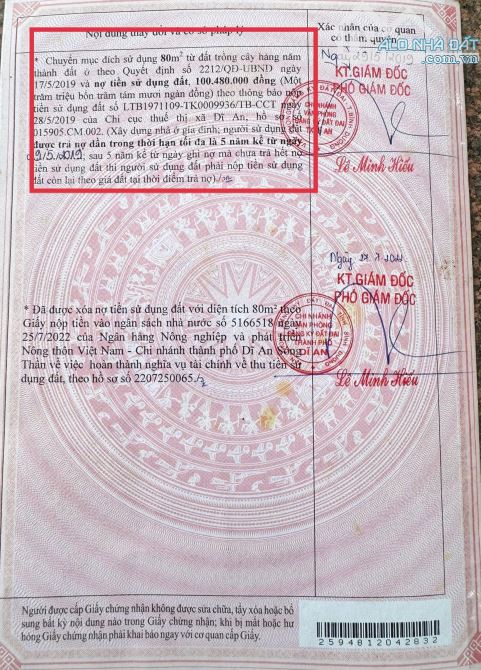 Nội dung thay đổi và cơ sở pháp lý
Xác nhận của cơ quan
có thẩm quyền
ALO NHÀ ĐẤT
.com.vn
* Chuyển mục đích sử dụng 80m² từ đất trồng cây hàng năm
thành đất ở theo Quyết định số 2212/QĐ-UBND ngày
17/5/2019 và nợ tiền sử dụng đất, 100.480.000 đồng (Một
trăm triệu bốn trăm tám mươi ngàn đồng) theo thông báo nộp
tiền sử dụng đất số LTB1971109-TK0009936/TB-CCT ngày
28/5/2019 của Chi cục thuế thị xã Dĩ An, hồ sơ số
015905.CM.002. (Xây dựng nhà ở gia đình; người sử dụng đất
được trả nợ dần trong thời hạn tối đa là 5 năm kể từ ngày
sau 5 năm kể từ ngày ghi nợ mà chưa trả hết nợ
tiền sử dụng đất thì người sử dụng đất phải nộp tiền sử dụng
đất còn lại theo giá đất tại thời điểm trả nợ)
Ngày 29/5/2019
KT.GIÁM ĐỐC
PHÓ GIÁM ĐỐC
CHI NHÁNH
VĂN PHÒNG
ĐĂNG KÝ ĐẤT ĐAI
Lê Minh Hiếu
KT.GIÁM ĐỐC
PHÓ GIÁM ĐỐC
CHI NHÁNH
VĂN PHÒNG
ĐĂNG KÝ ĐẤT ĐAI
THÀNH PHỐ
DĨ AN
Lê Minh Hiếu
* Đã được xóa nợ tiền sử dụng đất với diện tích 80m² theo
Giấy nộp tiền vào ngân sách nhà nước số 5166518 ngày
25/7/2022 của Ngân hàng Nông nghiệp và phát triển
Nông thôn Việt Nam - Chi nhánh thành phố Dĩ An Sóng
Thần về việc hoàn thành nghĩa vụ tài chính về thu tiền sử
dụng đất, theo hồ sơ số 2207250065
Người được cấp Giấy chứng nhận không được sửa chữa, tẩy xóa hoặc bổ
sung bất kỳ nội dung nào trong Giấy chứng nhận; khi bị mất hoặc hư
hỏng Giấy chứng nhận phải khai báo ngay với cơ quan cấp Giấy.
2594812042832